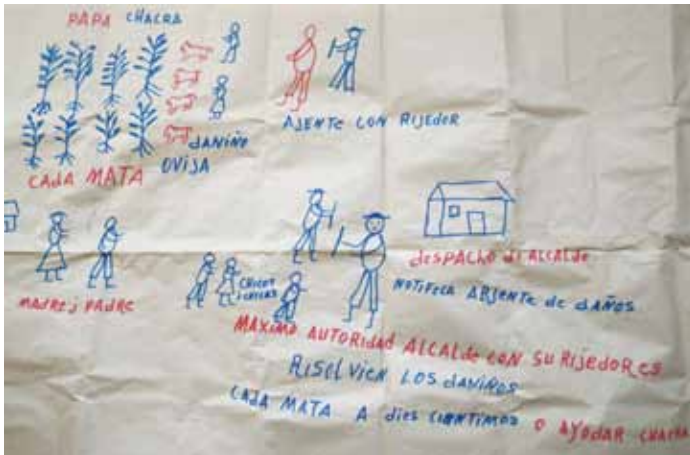 PAPA CHACRA
AJENTE CON RIJEDOR
DANIÑO
OVIJA
CADA MATA
MADRE j PADRE
CHICOS
I CHICAS
DESPACHO di ALCALDE
NOTIFECA ABJENTE de dAÑOS
MAXIMO AUTORIDAD ALCALDE CON SU RIJEDORES
RISELVIEN LOS DANIÑOS
CADA MATA A dies CIENTIMOS O AYODAR CHACRA